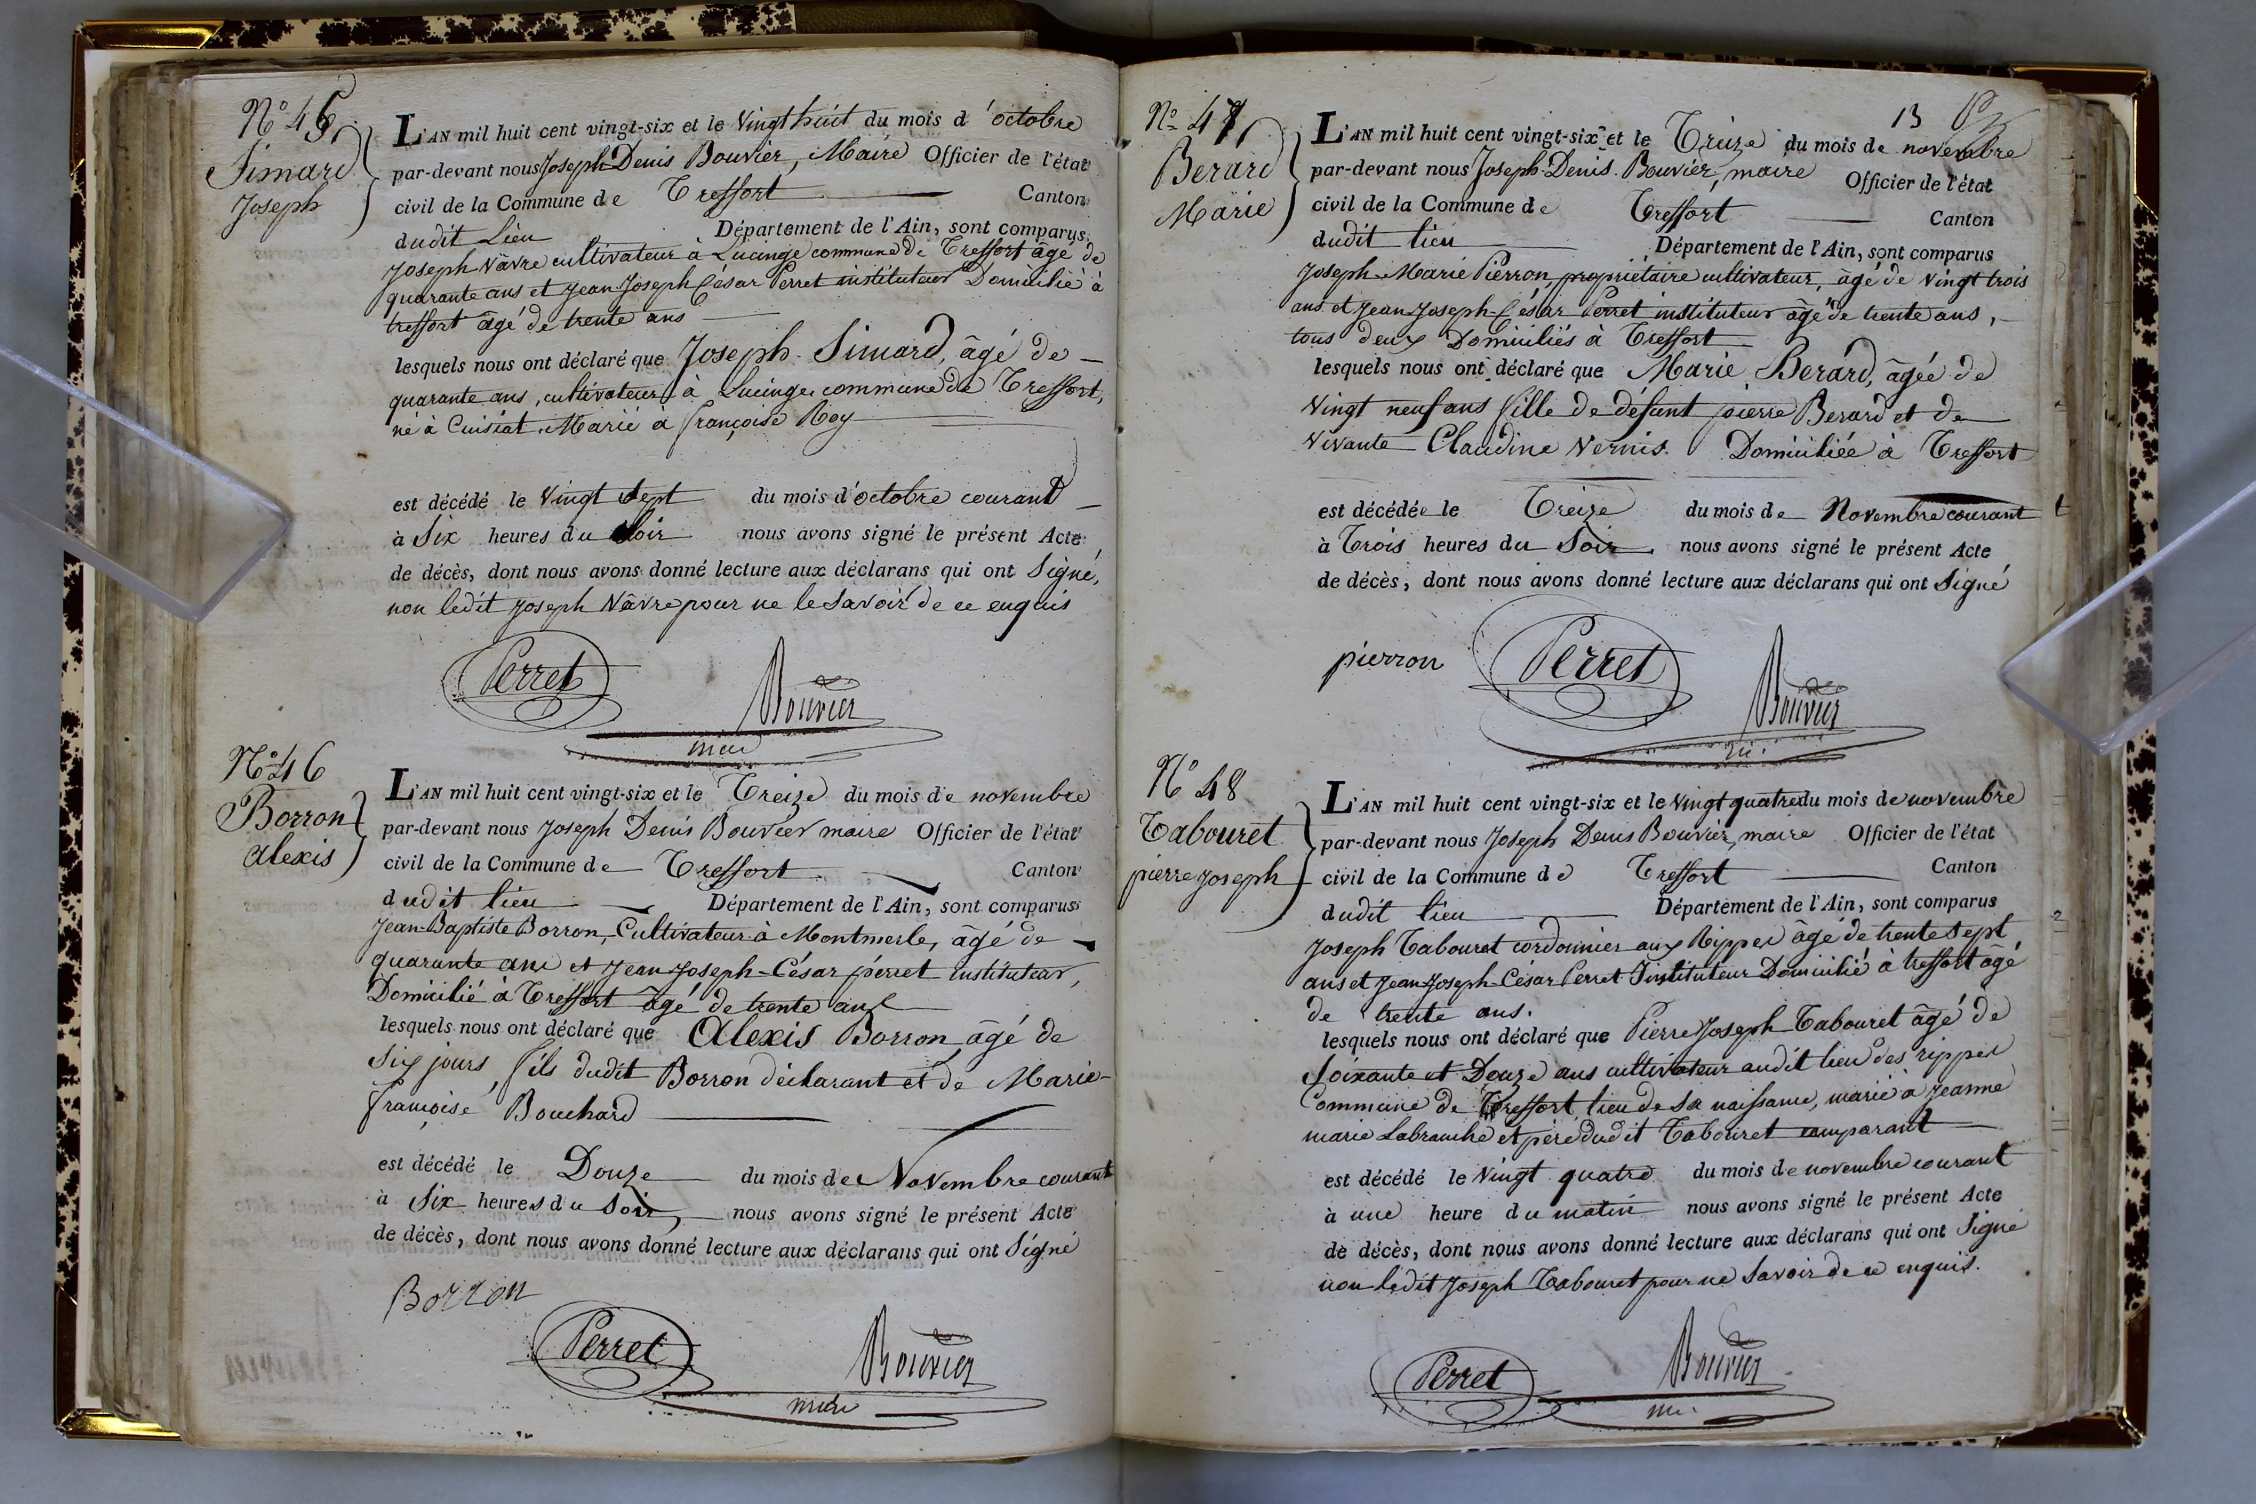 N° 45
Simard
Joseph
L'AN mil huit cent vingt-six et le vingt huit du mois d'octobre
par-devant nous Joseph Denis Bouvier, Maire Officier de l'état
civil de la Commune de Treffort Canton
dudit Lieu Département de l'Ain, sont comparus
Joseph Nâvre cultivateur à Lucinge commune de Treffort âgé de
quarante ans et Jean Joseph César Perret instituteur Domicilié à
treffort âgé de trente ans
lesquels nous ont déclaré que Joseph Simard, âgé de
quarante ans, cultivateur à Lucinge commune de Treffort,
né à Cuisiat. Marié à françoise Roy
est décédé le vingt Sept du mois d'octobre courant
à Six heures du Soir nous avons signé le présent Acte
de décès, dont nous avons donné lecture aux déclarans qui ont Signé,
non ledit Joseph Nâvre pour ne le Savoir de ce enquis
Perret
Bouvier
N° 46
Borron
Alexis
L'AN mil huit cent vingt-six et le Treize du mois de novembre
par-devant nous Joseph Denis Bouvier maire Officier de l'état
civil de la Commune de Treffort Canton
dudit lieu Département de l'Ain, sont comparus
Jean-Baptiste Borron, Cultivateur à Montmerle, âgé de
quarante ans et Jean-Joseph-César perret instituteur,
Domicilié à Treffort âgé de trente ans
lesquels nous ont déclaré que Alexis Borron, âgé de
Six jours, fils dudit Borron déclarant et de Marie-
françoise Bouchard
est décédé le Douze du mois de Novembre courant
à Six heures du Soir, nous avons signé le présent Acte
de décès, dont nous avons donné lecture aux déclarans qui ont Signé
Borron
Perret
Bouvier
13
N° 47
Berard
Marie
L'AN mil huit cent vingt-six et le Treize du mois de novembre
par-devant nous Joseph-Denis Bouvier, maire Officier de l'état
civil de la Commune de Treffort Canton
dudit lieu Département de l'Ain, sont comparus
Joseph-Marie Pierron, propriétaire cultivateur, âgé de vingt trois
ans et Jean-Joseph-César Perret instituteur âgé de trente ans,
tous deux Domiciliés à Treffort
lesquels nous ont déclaré que Marie Berard, âgée de
vingt neuf ans fille de défunt pierre Berard et de
vivante Claudine Vernis. Domiciliée à Treffort
est décédée le Treize du mois de Novembre courant
à Trois heures du Soir, nous avons signé le présent Acte
de décès, dont nous avons donné lecture aux déclarans qui ont Signé
pierron
Perret
Bouvier
N° 48
Tabouret
pierre Joseph
L'AN mil huit cent vingt-six et le vingt quatre du mois de novembre
par-devant nous Joseph Denis Bouvier, maire Officier de l'état
civil de la Commune de Treffort Canton
dudit lieu Département de l'Ain, sont comparus
Joseph Tabouret cordonnier aux Rippes âgé de trente Sept
ans et Jean-Joseph-César Perret instituteur Domicilié à treffort âgé
de trente ans.
lesquels nous ont déclaré que Pierre Joseph Tabouret âgé de
Soixante et Douze ans cultivateur audit lieu des rippes
Commune de Treffort, lieu de Sa naissance, marié à Jeanne
marie Labranche et père dudit Tabouret comparant
est décédé le vingt quatre du mois de novembre courant
à une heure du matin nous avons signé le présent Acte
de décès, dont nous avons donné lecture aux déclarans qui ont Signé
non ledit Joseph Tabouret pour ne Savoir de ce enquis.
Perret
Bouvier